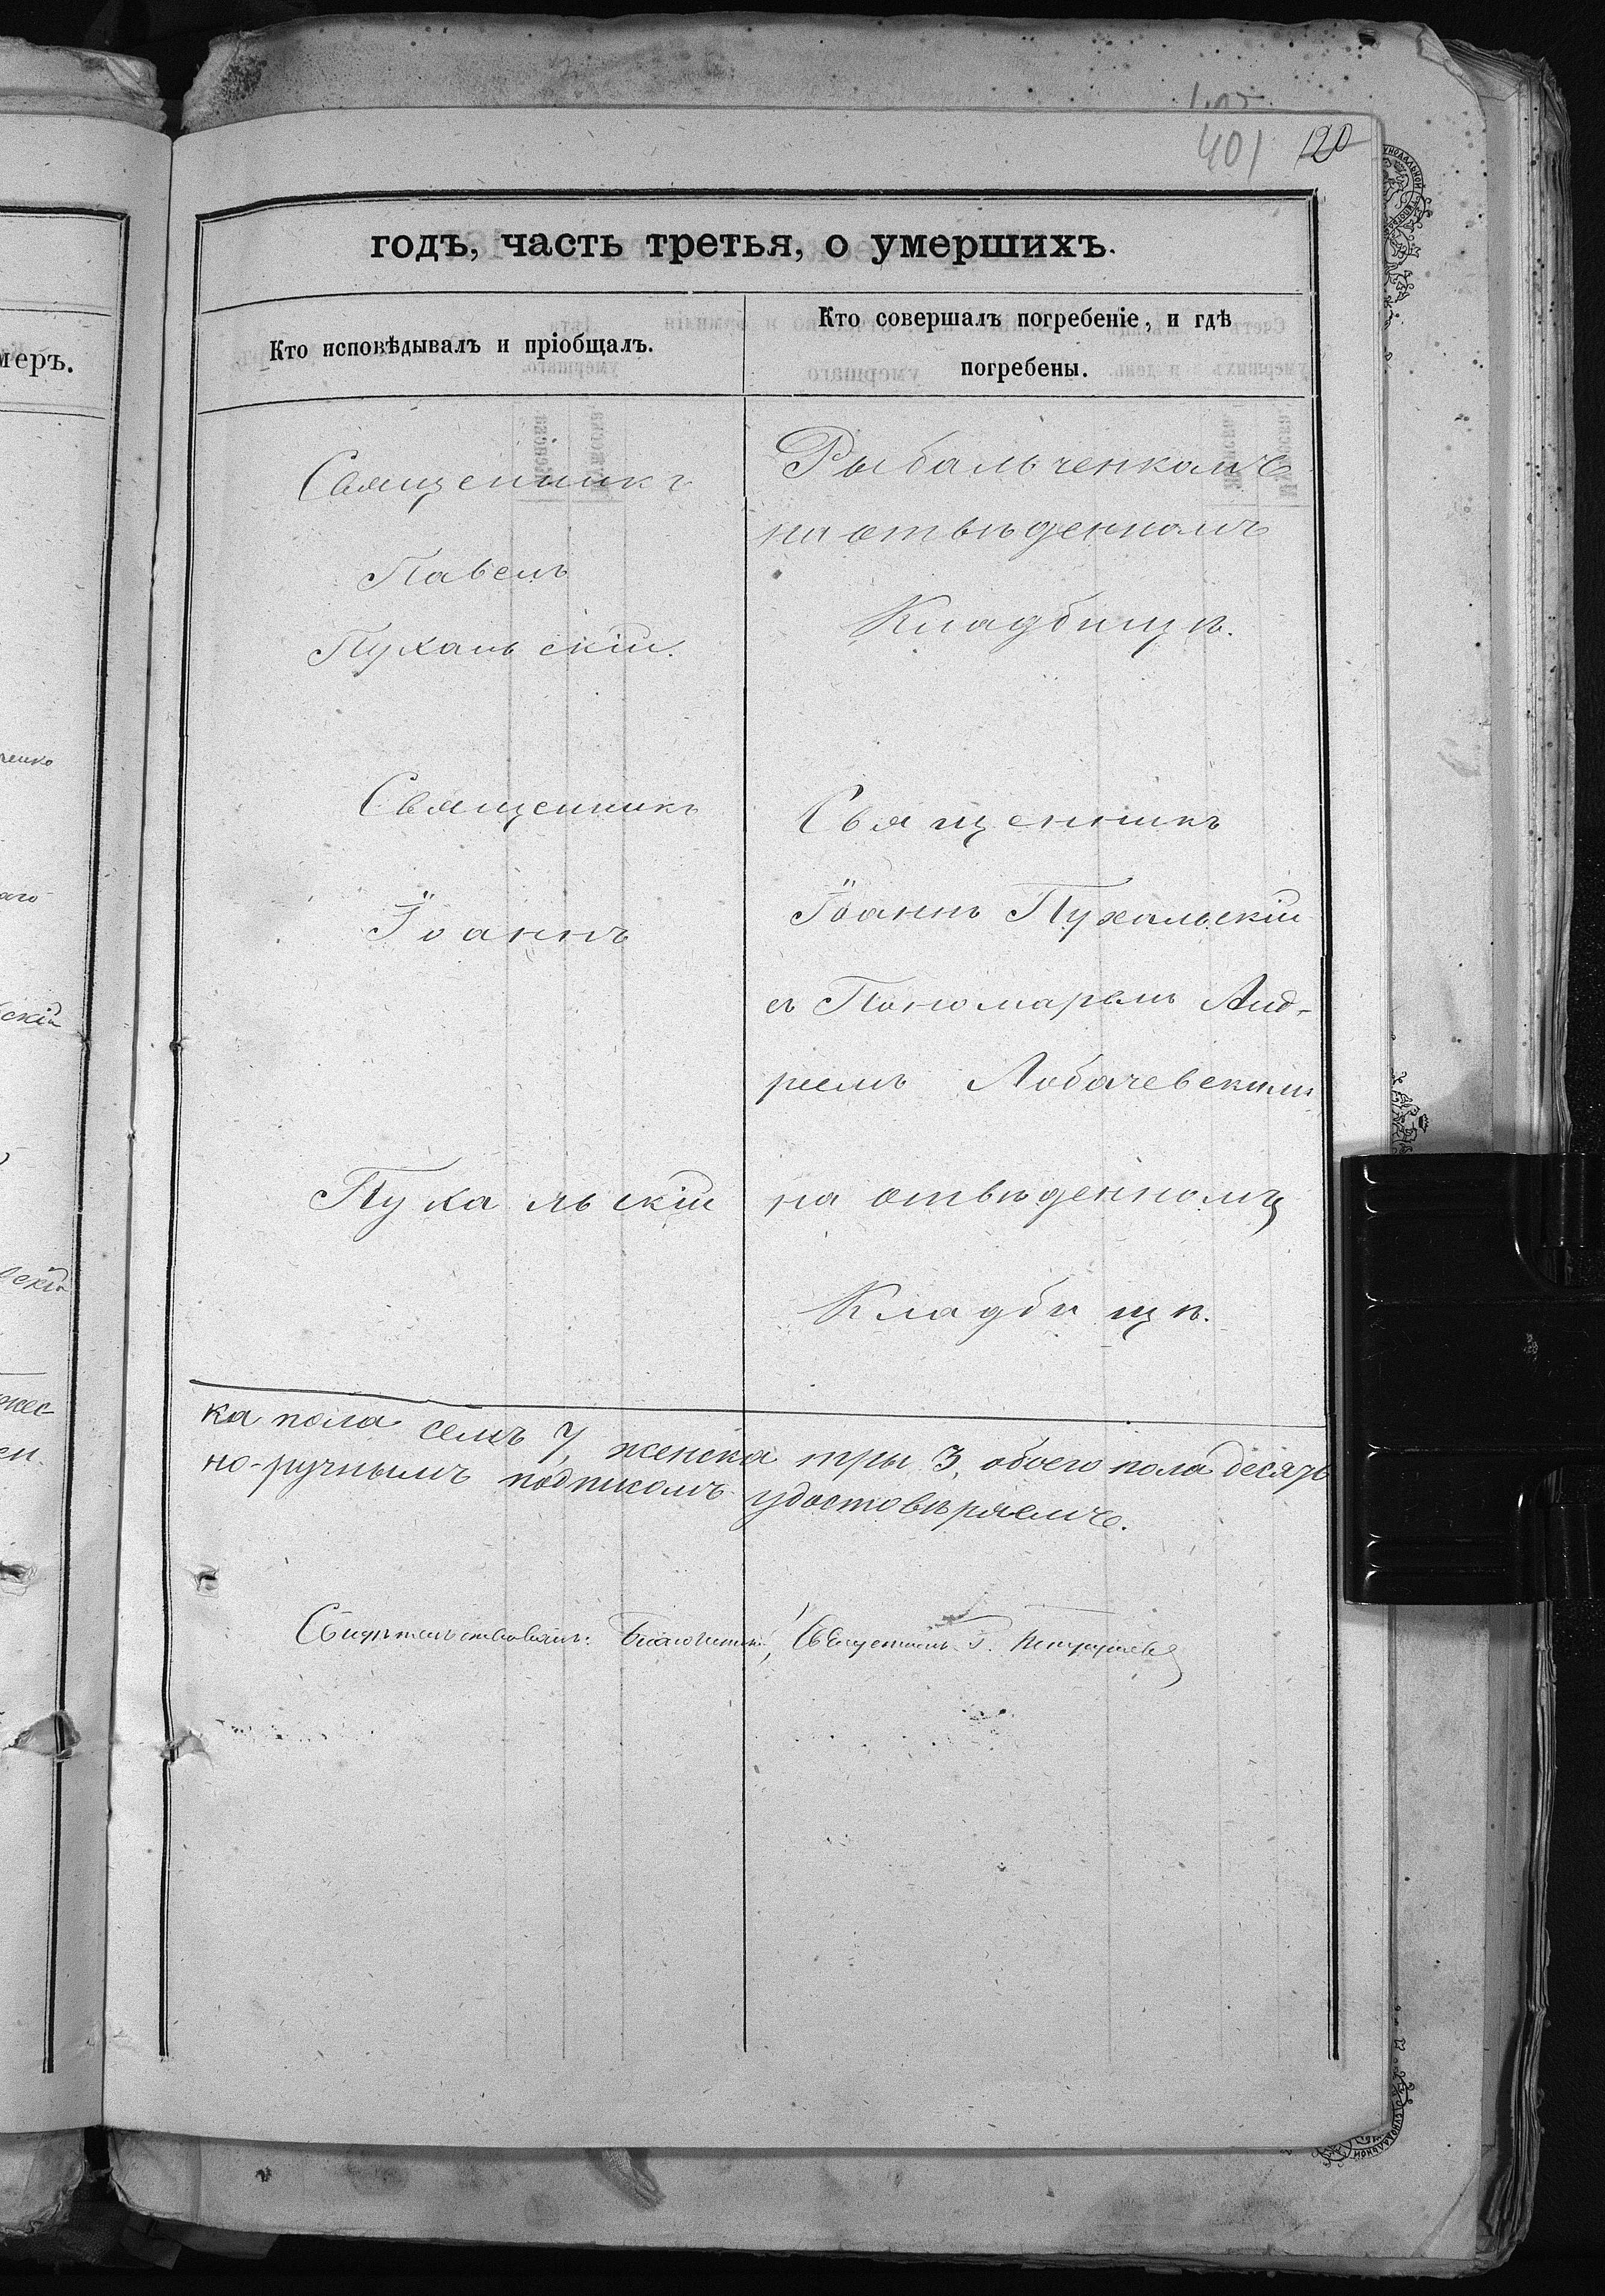 401 120
годъ, часть третья, о умершихъ.
Кто исповѣдывалъ и пріобщалъ.
Кто совершалъ погребеніе, и гдѣ
погребены.
меръ.
Священникъ
Павелъ
Пухальскій.
Рыбальченкомъ
на отвѣденномъ
Кладбищѣ.
Священникъ
Іоаннъ
Пухальскій
Священникъ
Іоаннъ Пухальскій
съ Пономаремъ Анд-
реемъ Лобачевскимъ
на отвѣденномъ
Кладбищѣ.
ка пола семъ 7, женска тры 3, обоего пола десять
но-ручнымъ подписомъ удостовѣряемъ.
Свидѣтельствовалъ: Благочинный, Священникъ